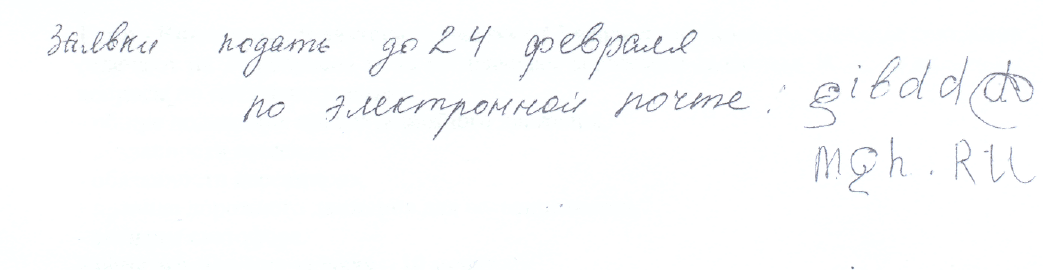 Заявки подать до 24 февраля
по электронной почте: gibdd@
mgh.RU